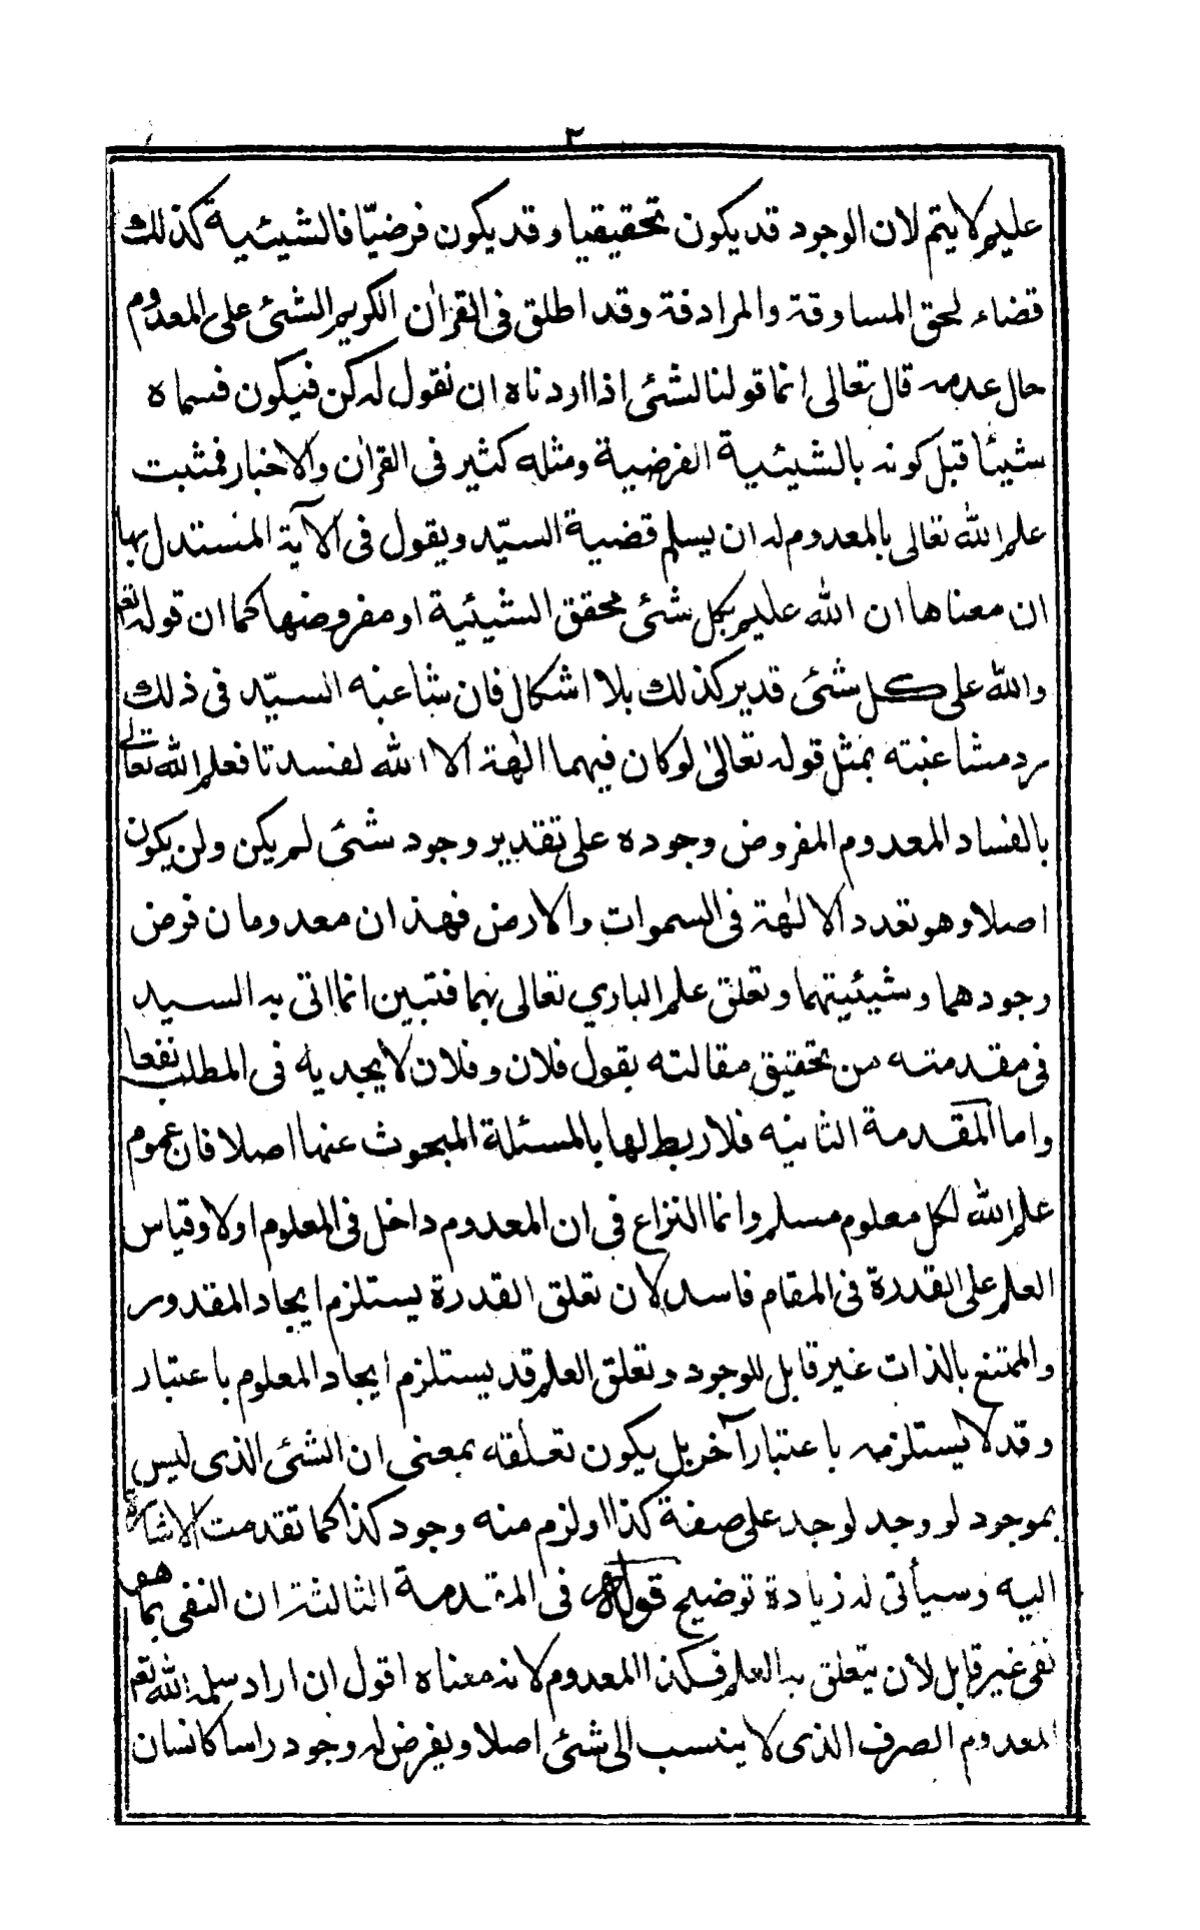 ٢
عليم لا يتم لان الوجود قد يكون تحقيقيا وقد يكون فرضيّا فالشيئية كذلك
قضاء لحق المساوقة والمرادفة وقد اطلق فى القرآن الكريم الشئ على المعدوم
حال عدمه قال تعالى انما قولنا لشئ اذا اردناه ان نقول له كن فيكون فسماه
شيئا قبل كونه بالشيئية الفرضية ومثله كثير فى القرآن والاخبار فمثبت
علم الله تعالى بالمعدوم له ان يسلم قضية السيّد ويقول فى الآية المستدل بها
ان معناها ان الله عليم بكل شئ محقق الشيئية او مفروضها كما ان قوله تعم
والله على كل شئ قدير كذلك بلا اشكال فان شاغبه السيّد فى ذلك
رد مشاغبته بمثل قوله تعالى لو كان فيهما الهة الا الله لفسدتا فعلم الله تعالى
بالفساد المعدوم المفروض وجوده على تقدير وجود شئ لم يكن ولن يكون
اصلا وهو تعدد الالهة فى السموات والارض فهذان معدومان فرض
وجودهما وشيئيتهما وتعلق علم الباري تعالى بهما فتبين انما اتى به السيد
فى مقدمته من تحقيق مقالته بقول فلان وفلان لا يجديه فى المطلب نفعا
واما المقدمة الثانيه فلا ربط لها بالمسئلة المبحوث عنها اصلا فان عموم
علم الله لكل معلوم مسلم وانما النزاع فى ان المعدوم داخل فى المعلوم اولا وقياس
العلم على القدرة فى المقام فاسد لان تعلق القدرة يستلزم ايجاد المقدور
والممتنع بالذات غير قابل للوجود وتعلق العلم قد يستلزم ايجاد المعلوم باعتبار
وقد لا يستلزمه باعتبار آخر بل يكون تعلقه بمعنى ان الشئ الذى ليس
بموجود لو وجد لوجد على صفة كذا او لزم منه وجود كذا كما تقدمت الاشارة
اليه وسيأتى له زيادة توضيح قوله فى المقدمة الثالثة ان النفى بما هو
نفى غير قابل لأن يتعلق به العلم فكذا المعدوم لانه معناه اقول ان اراد سلمه الله تعم
المعدوم الصرف الذى لا ينسب الى شئ اصلا ويفرض له وجود راسا كانسان